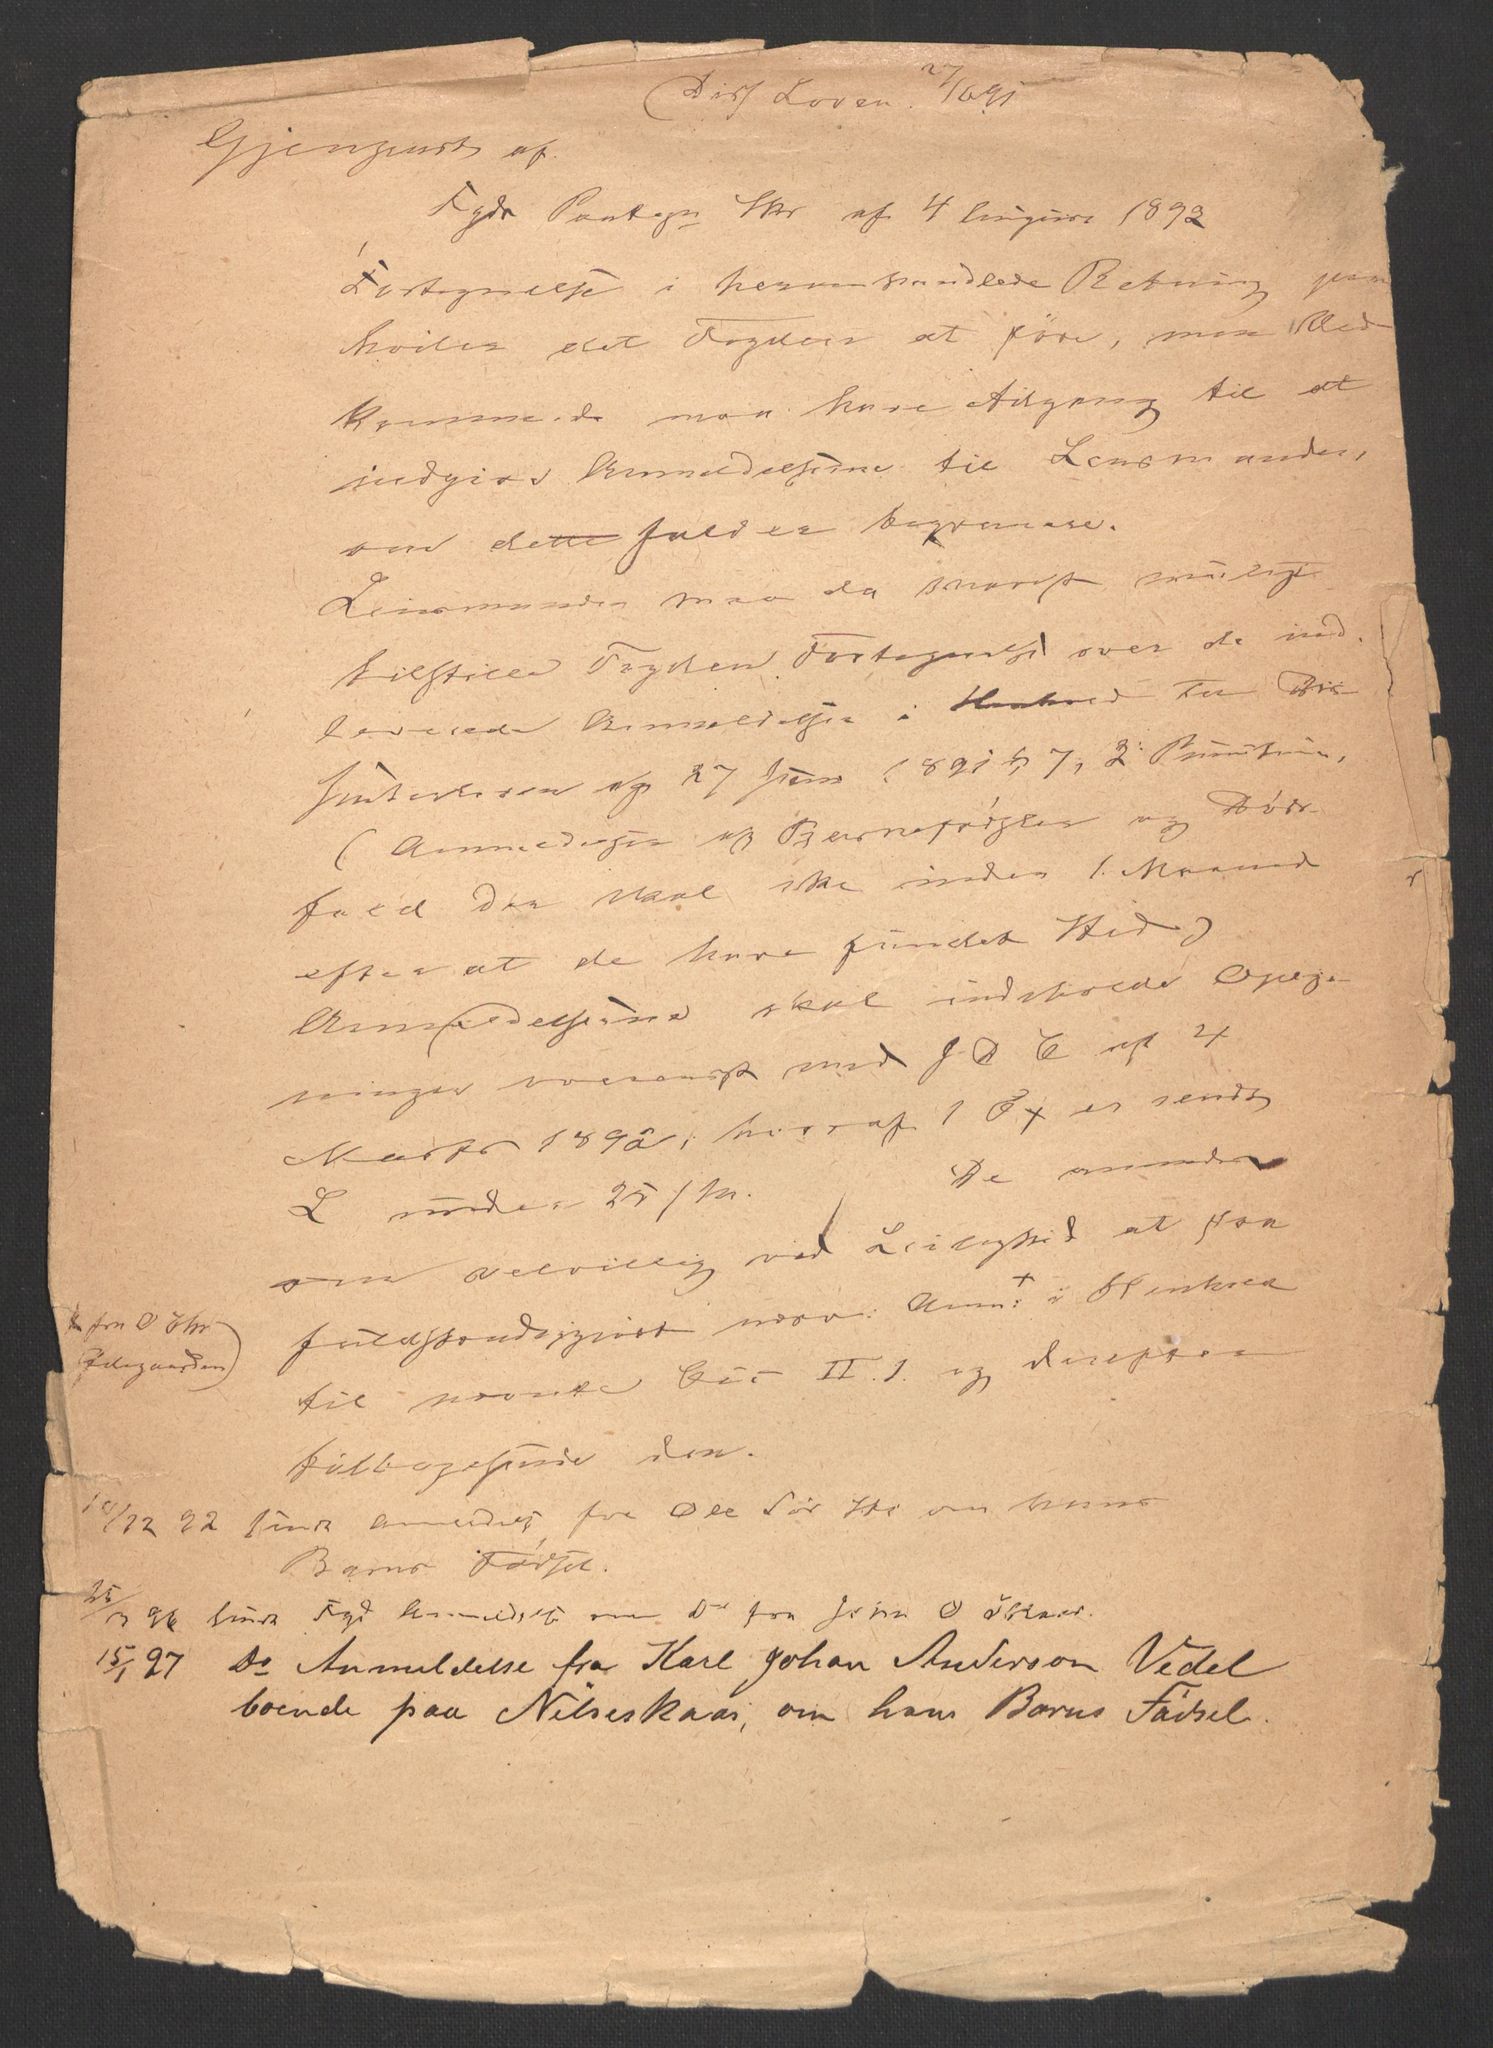 (Diss Loven 27/6 91
Gjenpart af
Fgds Paategn Skr af 4 1892
Fortegnelse i heromhandlede Retning paa
hviler det Fogden at føre, men Ved
kommende maa have Adgang til at
indgive Anmeldelserne til Lensmanden,
om dette falder beqvemere.
Lensmanden maa da snarest muligt
tilstille Fogden Fortegnelse over de ind
leverede Anmeldelser i Henhold til Dis
senterloven af 27 Juni 1891 § 7, 2 Punktum,
(Anmeldelser af Barnefødsler og Døds
fald der skal ske inden 1. Maaned
efter at de have fundet Sted)
Anmeldelserne skal indeholde Oplys
ninger overenst med J D C af 4
Marts 1892, hvoraf 1 Ex er sendt
L under 25/ De anmodes
om velvillig ved Leilighed at faa
fuldstændiggjort Anm: + i Henhold
til nævnte Cir II.1. og derefter
tilbagesende den.
+ fra O
10/12 92 sendt anmeldelse fra Ole om hans
Barns Fødsel.
25/ 96 sendt Fgd Anmeldelse om Do fra John O
15/1 97 Do Anmeldelse fra Karl Johan Anderson Vedel
boende paa Nilseskaar, om hans Barns Fødsel.